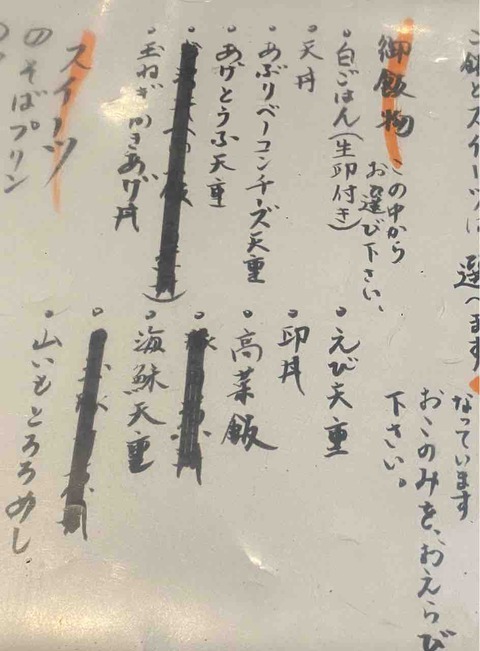 ご飯とスイーツは 選べます
なっています
おこのみを、おえらび
下さい。
御飯物 この中から
お選び下さい、
・白ごはん(生卵付き)
・天丼
・あぶりベーコンチーズ天重
・あげとうふ天重
・玉ねぎかきあげ丼
・えび天重
・卵丼
・高菜飯
・海鮮天重
・山いもとろろめし
スイーツ
のそばプリン